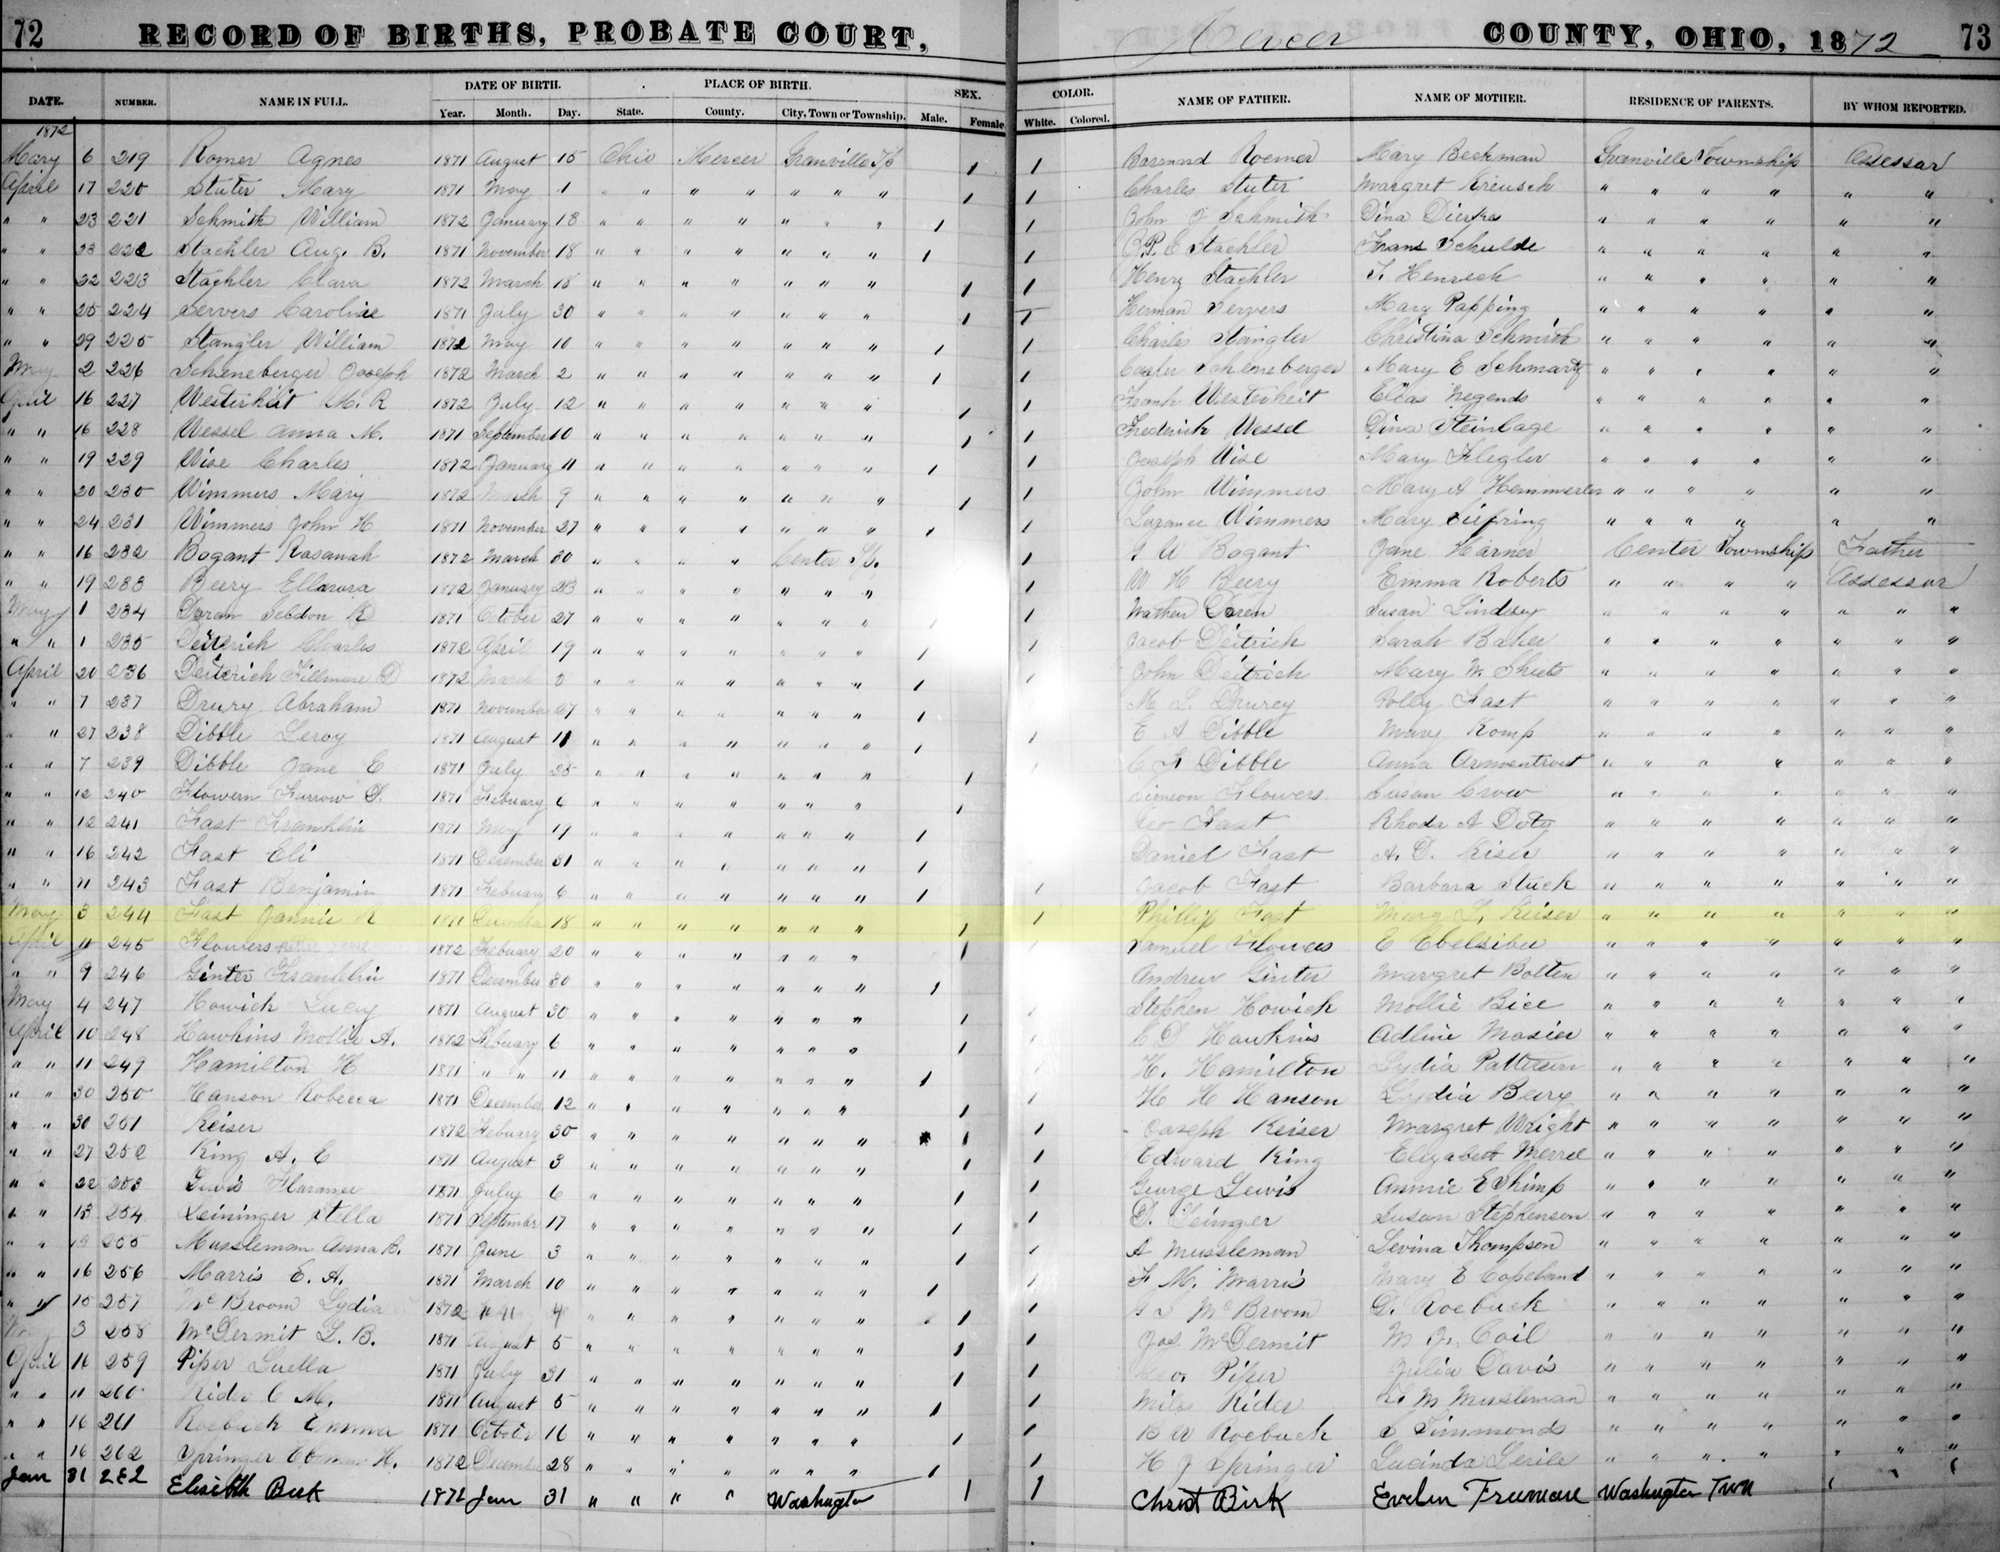 72 RECORD OF BIRTHS, PROBATE COURT, Mercer COUNTY, OHIO, 1872 73
DATE. NUMBER. NAME IN FULL. DATE OF BIRTH. PLACE OF BIRTH. SEX. COLOR. NAME OF FATHER. NAME OF MOTHER. RESIDENCE OF PARENTS. BY WHOM REPORTED.
Year. Month. Day. State. County. City, Town or Township. Male. Female White. Colored.
1872
May 6 219 Romer Agnes 1871 August 15 Ohio Mercer Granville Tp 1 1 Roemer Mary Beckman Granville Township Assessor
April 17 220 Stuter Mary 1871 May 1 " " " " " " " 1 1 Charles Stuter Margret Kreusch " " " " " "
" " 23 221 Schmith William 1872 January 13 " " " " " " " 1 1 John J Schmith Dina " " " " " "
" " 23 222 Stachler Aug. B. 1871 November 18 " " " " " " " 1 1 Stachler Frans Schulde " " " " " "
" " 22 223 Stachler Clara 1872 March 18 " " " " " " " 1 1 Henry Stachler " " " " " "
" " 25 224 Servers Caroline 1871 July 30 " " " " " " " 1 1 Herman Servers Mary Papping " " " " " "
" " 29 225 Stangler William 1872 May 10 " " " " " " " 1 1 Charles Stangler Christina Schmith " " " " " "
May 2 226 Scheneberger Joseph 1872 March 2 " " " " " " " 1 1 Scheneberger Mary E Schwartz " " " " " "
April 16 227 Westerheit M. R 1872 July 12 " " " " " " " 1 1 Frank Westerheit Negends " " " " " "
" " 16 228 Wessel Anna M. 1871 September 10 " " " " " " " 1 1 Frederick Wessel Dina Steinlage " " " " " "
" " 19 229 Wise Charles 1872 January 11 " " " " " " " 1 1 Joseph Wise Mary Flegler " " " " " "
" " 20 230 Wimmers Mary 1872 March 9 " " " " " " " 1 1 John Wimmers Mary A " " " " " "
" " 24 231 Wimmers John H 1871 November 27 " " " " " " " 1 1 Wimmers Mary " " " " " "
" " 16 232 Bagant Rasanah 1872 March 30 " " " " Center Tp. 1 Bagant Jane Harner Center Township Father
" " 19 233 Beery Ellarora 1872 January 23 " " " " " " " 1 W H Beery Emma Roberts " " " " Assessor
May 1 234 Doran R 1871 October 27 " " " " " " " 1 1 Nathan Doren Susan Lindsey " " " " " " "
" " 1 235 Deitrich Charles 1872 April 19 " " " " " " " 1 1 Jacob Deitrich Sarah Baker " " " " " " "
April 20 236 Deitrich Fillmore D 1872 March 3 " " " " " " " 1 1 John Deitrich Mary W. Sheets " " " " " " "
" " 7 237 Drury Abraham 1871 November 27 " " " " " " " 1 M L Polly Fast " " " " " " "
" " 27 238 Dibble Leroy 1871 August 11 " " " " " " " 1 1 E A Dibble Mary Romp " " " " " " "
" " 7 239 Dibble Jane E 1871 July 25 " " " " " " " 1 1 C F Dibble Anna Armentrout " " " " " " "
" " 12 240 Flowers Farrow 1871 Febuary 6 " " " " " " " 1 Simeon Flowers Susan Crow " " " " " " "
" " 12 241 Fast Franklin 1871 May 19 " " " " " " " 1 Geo Fast Rhoda A Doty " " " " " " "
" " 16 242 Fast Eli 1871 December 31 " " " " " " " 1 Daniel Fast A. D. Kiser " " " " " " "
" " 11 243 Fast Benjamin 1871 Febuary 6 " " " " " " " 1 1 Jacob Fast Barbara Stuck " " " " " " "
May 3 244 Fast Jannie R 1871 December 18 " " " " " " " 1 1 Phillip Fast Mary L. Keiser " " " " " " "
April 11 245 Flowers 1872 Febuary 20 " " " " " " " 1 Samuel Flowers E Ebelsiber " " " " " " "
" " 9 246 Ginter Franklin 1871 December 30 " " " " " " " 1 Andrew Ginter Margret Bolten " " " " " " "
May 4 247 Howick Lucy 1871 August 30 " " " " " " " 1 1 Stephen Howick Mollie Bice " " " " " " "
April 10 248 Hawkins Mollie A. 1872 Febuary 6 " " " " " " " 1 C D Hawkins Adline Mosier " " " " " " "
" " 11 249 Hamilton H 1871 " " 11 " " " " " " " 1 1 H. Hamilton Lydia Patterson " " " " " " "
" " 30 250 Hanson Rebecca 1871 December 12 " " " " " " " 1 1 H H Hanson Lydia Beery " " " " " " "
" " 30 251 Keiser 1872 Febuary 30 " " " " " " " 1 1 Joseph Keiser Margret Wright " " " " " " "
" " 27 252 King A. E 1871 August 3 " " " " " " " 1 1 Edward King Elizabeth " " " " " " "
" " 22 253 Lewis 1871 July 6 " " " " " " " 1 1 George Lewis Annie E Shimp " " " " " " "
" " 13 254 Leininger Stella 1871 September 17 " " " " " " " 1 1 D. Leinger Susan Stephenson " " " " " " "
" " 13 255 Mussleman Anna B. 1871 June 3 " " " " " " " 1 1 A Mussleman Levina Thompson " " " " " " "
" " 16 256 Marris E. A. 1871 March 10 " " " " " " " 1 1 F M. Marris Mary E Copeland " " " " " " "
" " 15 257 McBroom Lydia 1872 " " 4 " " " " " " " 1 1 McBroom D. Roebuck " " " " " " "
May 3 258 McDermit L. B. 1871 August 5 " " " " " " " 1 1 Jos McDermit M Coil " " " " " " "
April 11 259 Piper Luella 1871 July 31 " " " " " " " 1 1 Geo. Piper Julia Davis " " " " " " "
" " 11 260 Rider C M. 1871 August 5 " " " " " " " 1 1 Milo Rider M Mussleman " " " " " " "
" " 16 261 Roebuck Emma 1871 October 16 " " " " " " " 1 1 B W Roebuck Simmonds " " " " " " "
" " 16 262 Springer H. 1872 December 28 " " " " " " " 1 1 H J Springer Lucinda " " " " " "
Jan 31 282 Elisebth Birk 1872 Jan 31 " " " " Washington 1 1 Christ Birk Evelin Freemane Washington Twn